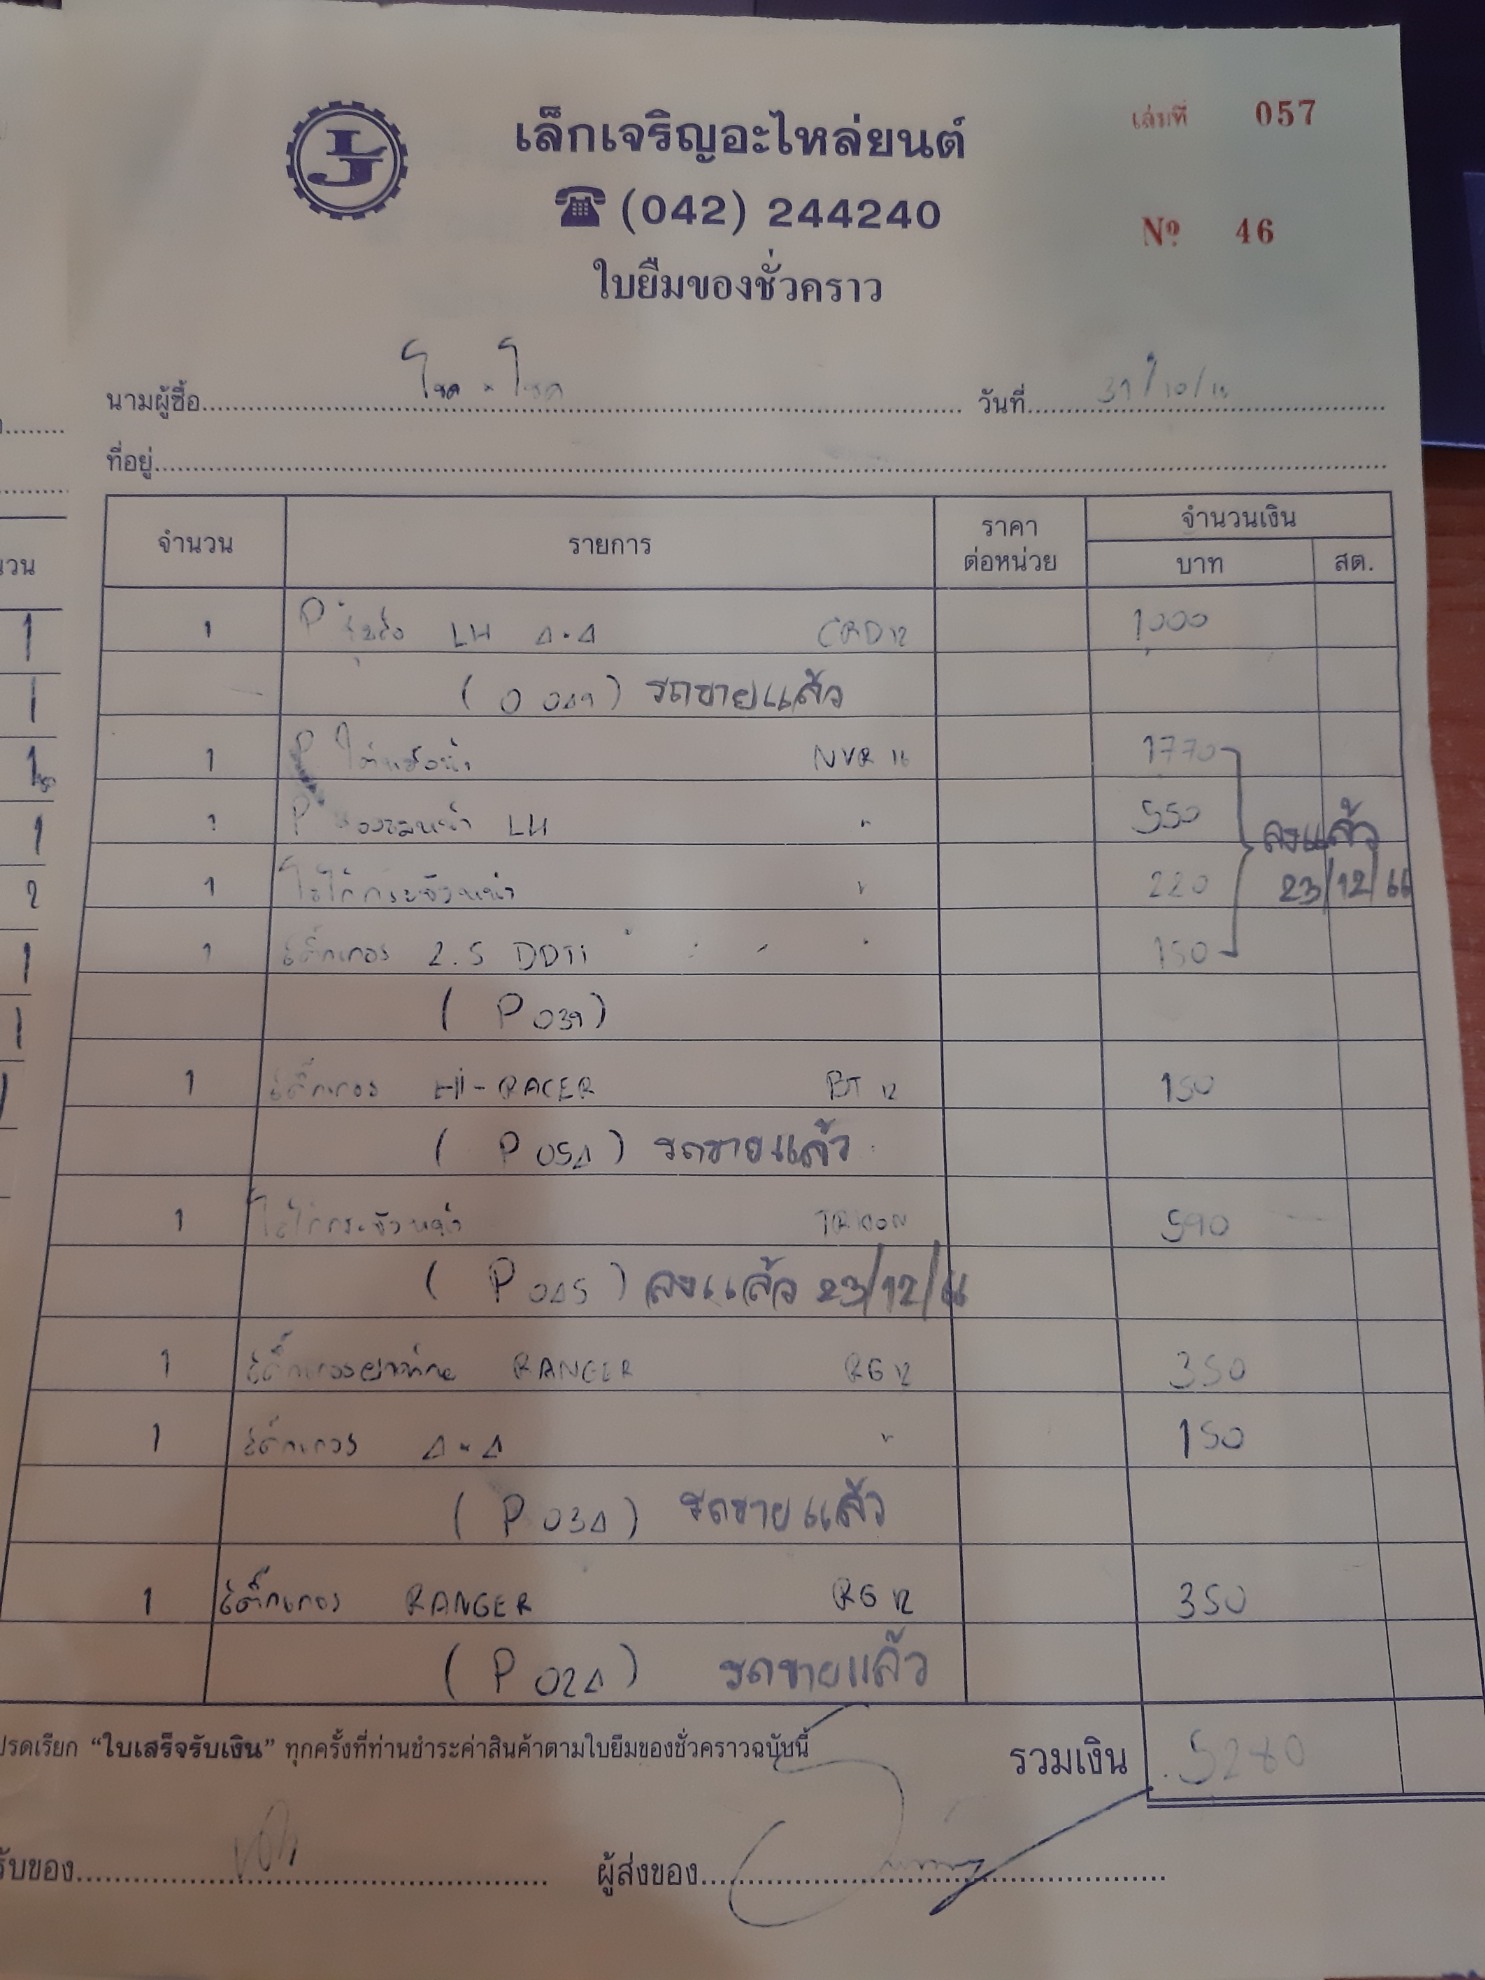 เล็กเจริญอะไหล่ยนต์
เล่มที่ 057
(042) 244240
Nº 46
ใบยืมของชั่วคราว
นามผู้ซื้อ โชค - โชค วันที่ 31/10/
ที่อยู่
จำนวน รายการ ราคาต่อหน่วย จำนวนเงิน
บาท สต.
1 P LH 4.4 1000
รถขายแล้ว
1 P NVR 16 1770
1 P LH " 550
1 220
ลงแล้ว
23/12/66
1 สติ๊กเกอร์ 2.5 DDTi " 150
(P 039)
1 สติ๊กเกอร์ Hi-RACER BT 12 150
(P 054) รถขายแล้ว
1 TRITON 590
(P 045) ลงแล้ว 23/12/66
1 RANGER RG 12 350
1 สติ๊กเกอร์ 4x4 " 150
(P 034) รถขายแล้ว
1 สติ๊กเกอร์ RANGER RG 12 350
(P 024) รถขายแล้ว
ปรดเรียก “ใบเสร็จรับเงิน” ทุกครั้งที่ท่านชำระค่าสินค้าตามใบยืมของชั่วคราวฉบับนี้
รวมเงิน 5280
รับของ
ผู้ส่งของ